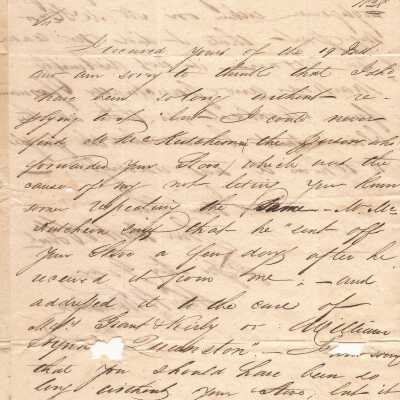 1828
Sir
I received yours of the 19 Inst.
and am sorry to think that I should
have been so long without re-
plying to it but I could never
find Mr McKutcheon, the person who
forwarded your Stove, which was the
cause of my not letting you know
sooner respecting the same. Mr Mc
Kutcheon says that he "sent off
your Stove a few days after he
received it from me; - and
addressed it to the care of
Messrs Grant & Kirby or William
Queenston". - I am sorry
that you should have been so
long without your Stove, but it